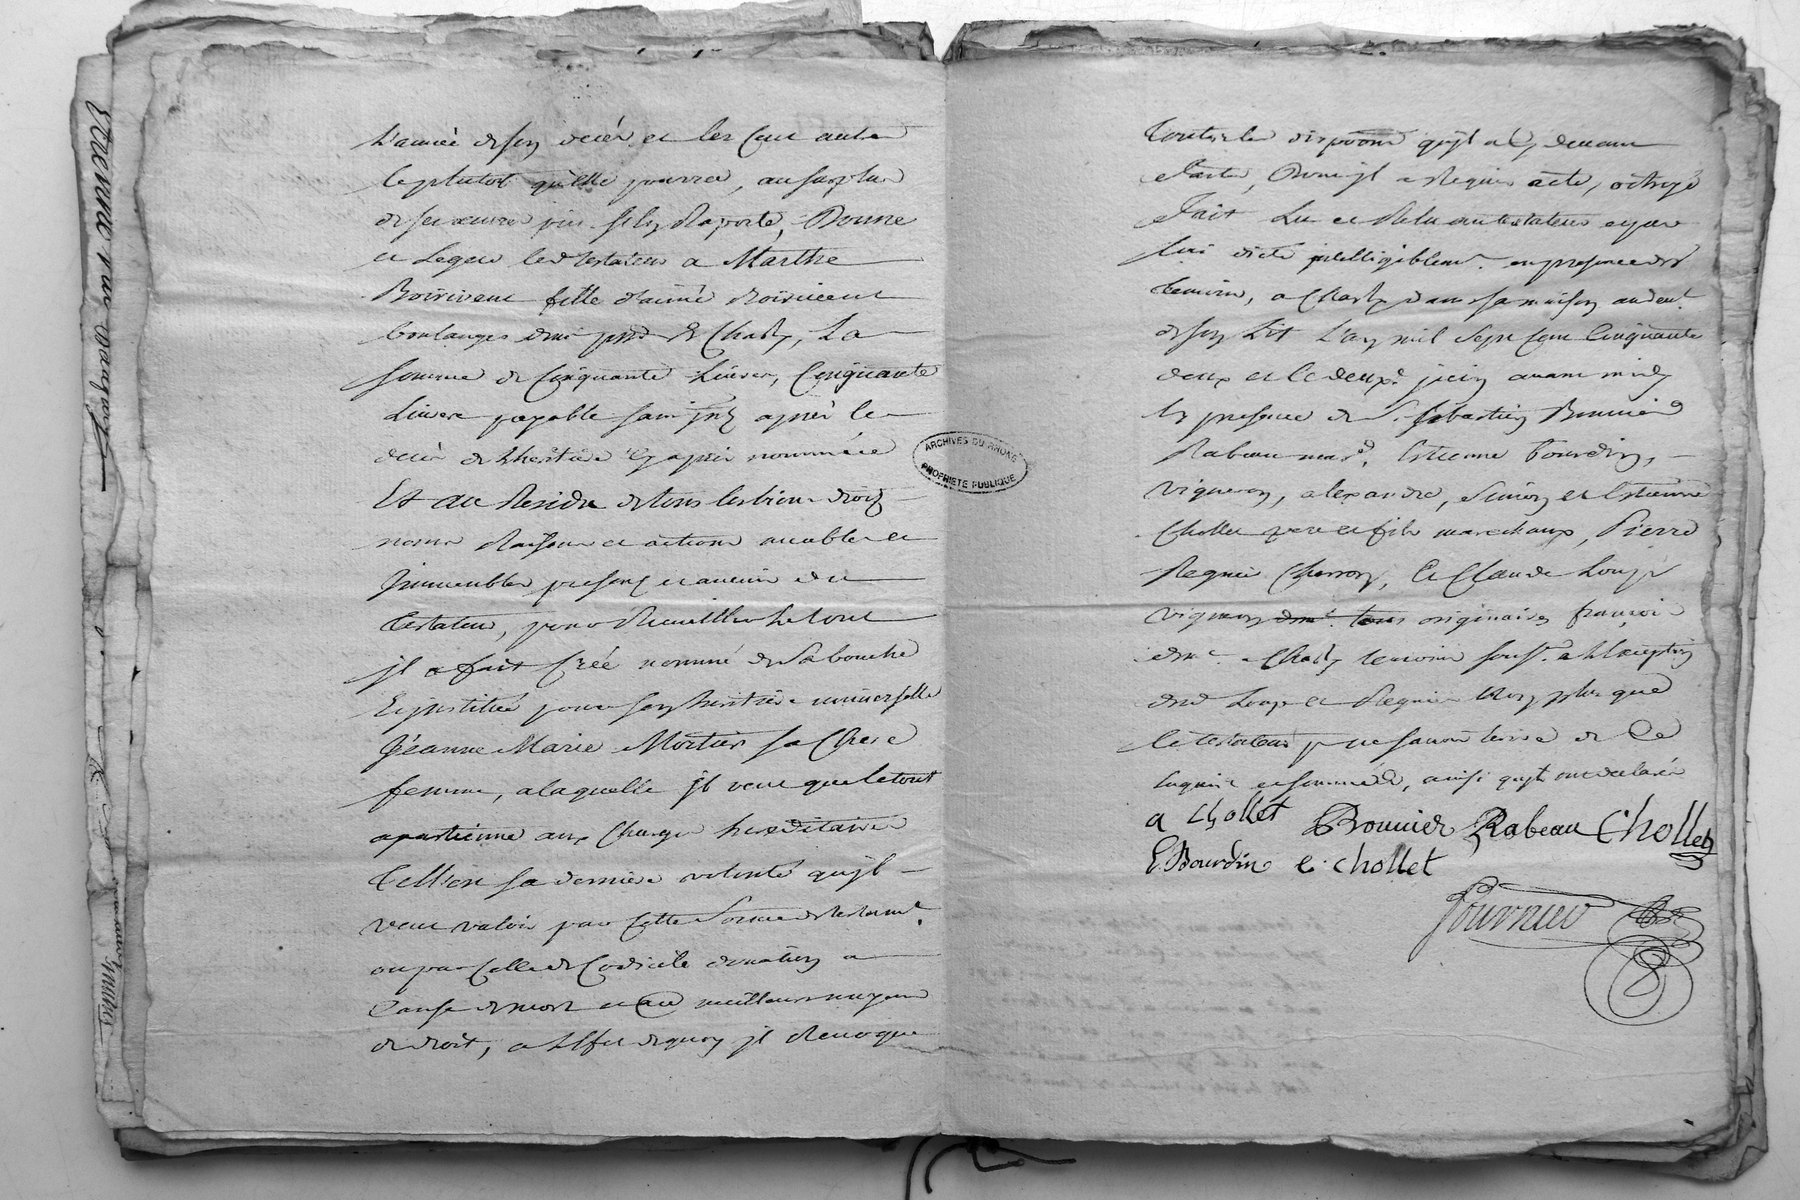 L'année de son décés et les cent autre
le plutost quelle pourra, au surplus
de ses œuvres pies s'en raporte, Donne
et Legue led. testateur a Marthe
Boirivent fille d'aimé Boirivent
boulanger dem.t psse de Charly, La
somme de Cinquante Livres, Cinquante
Livres payable sans jnt. apres le
decés de Lheritiere cy apres nommée
Et au Residu de tous les biens droits
noms Raisons et actions meubles et
Jmmeubles presens et avenir du
Testateur, pour Recueillir Le tout
jl a fait Créé nommé de Sa bouche
Et jnstitué pour son heritiere universelle
Jéanne Marie Mortier sa Chere
femme, a laquelle jl veut que le tout
apartienne aux Charges hereditaires
Telle est sa derniere volonté qu'jl
veut valoir par Cette forme de testam.t
ou par Celle de Codicile donation a
Cause de mort et au meilleur moyen
de droit, a L'effet de quoy jl Revoque
Toutes les disp̃ons qu'jl a Cy devant
faites, Dont jl a Requis acte, octroyé
Fait Lu et Relu au testateur et par
lui dicté jntelligiblem.t en presence des
temoins, a Charly dans sa maison au devt.
de son Lit L'an mil Sept Cent Cinquante
deux et le deuxe. juin avant midy
En presence de S. Sebastien Bonnier
Rabeau mard. Estienne Bourdin,
vigneron, alexandre, Simon et Estienne
Chollet pere et fils marechaux, Pierre
Regnié Charron, Et Claude Loup
vigneron demt. tous originaires françois
demt. a Charly temoins sousse. a L'exception
desd. Loup et Regnié Non plus que
le testateur p ne savoir écrire de Ce
Enquis et sommés, ainsi qu'jls ont declaré
a Chollet Bonnier Rabeau Chollet
E. Bourdin e. chollet
Fournier
ARCHIVES DU RHONE
PROPRIETE PUBLIQUE